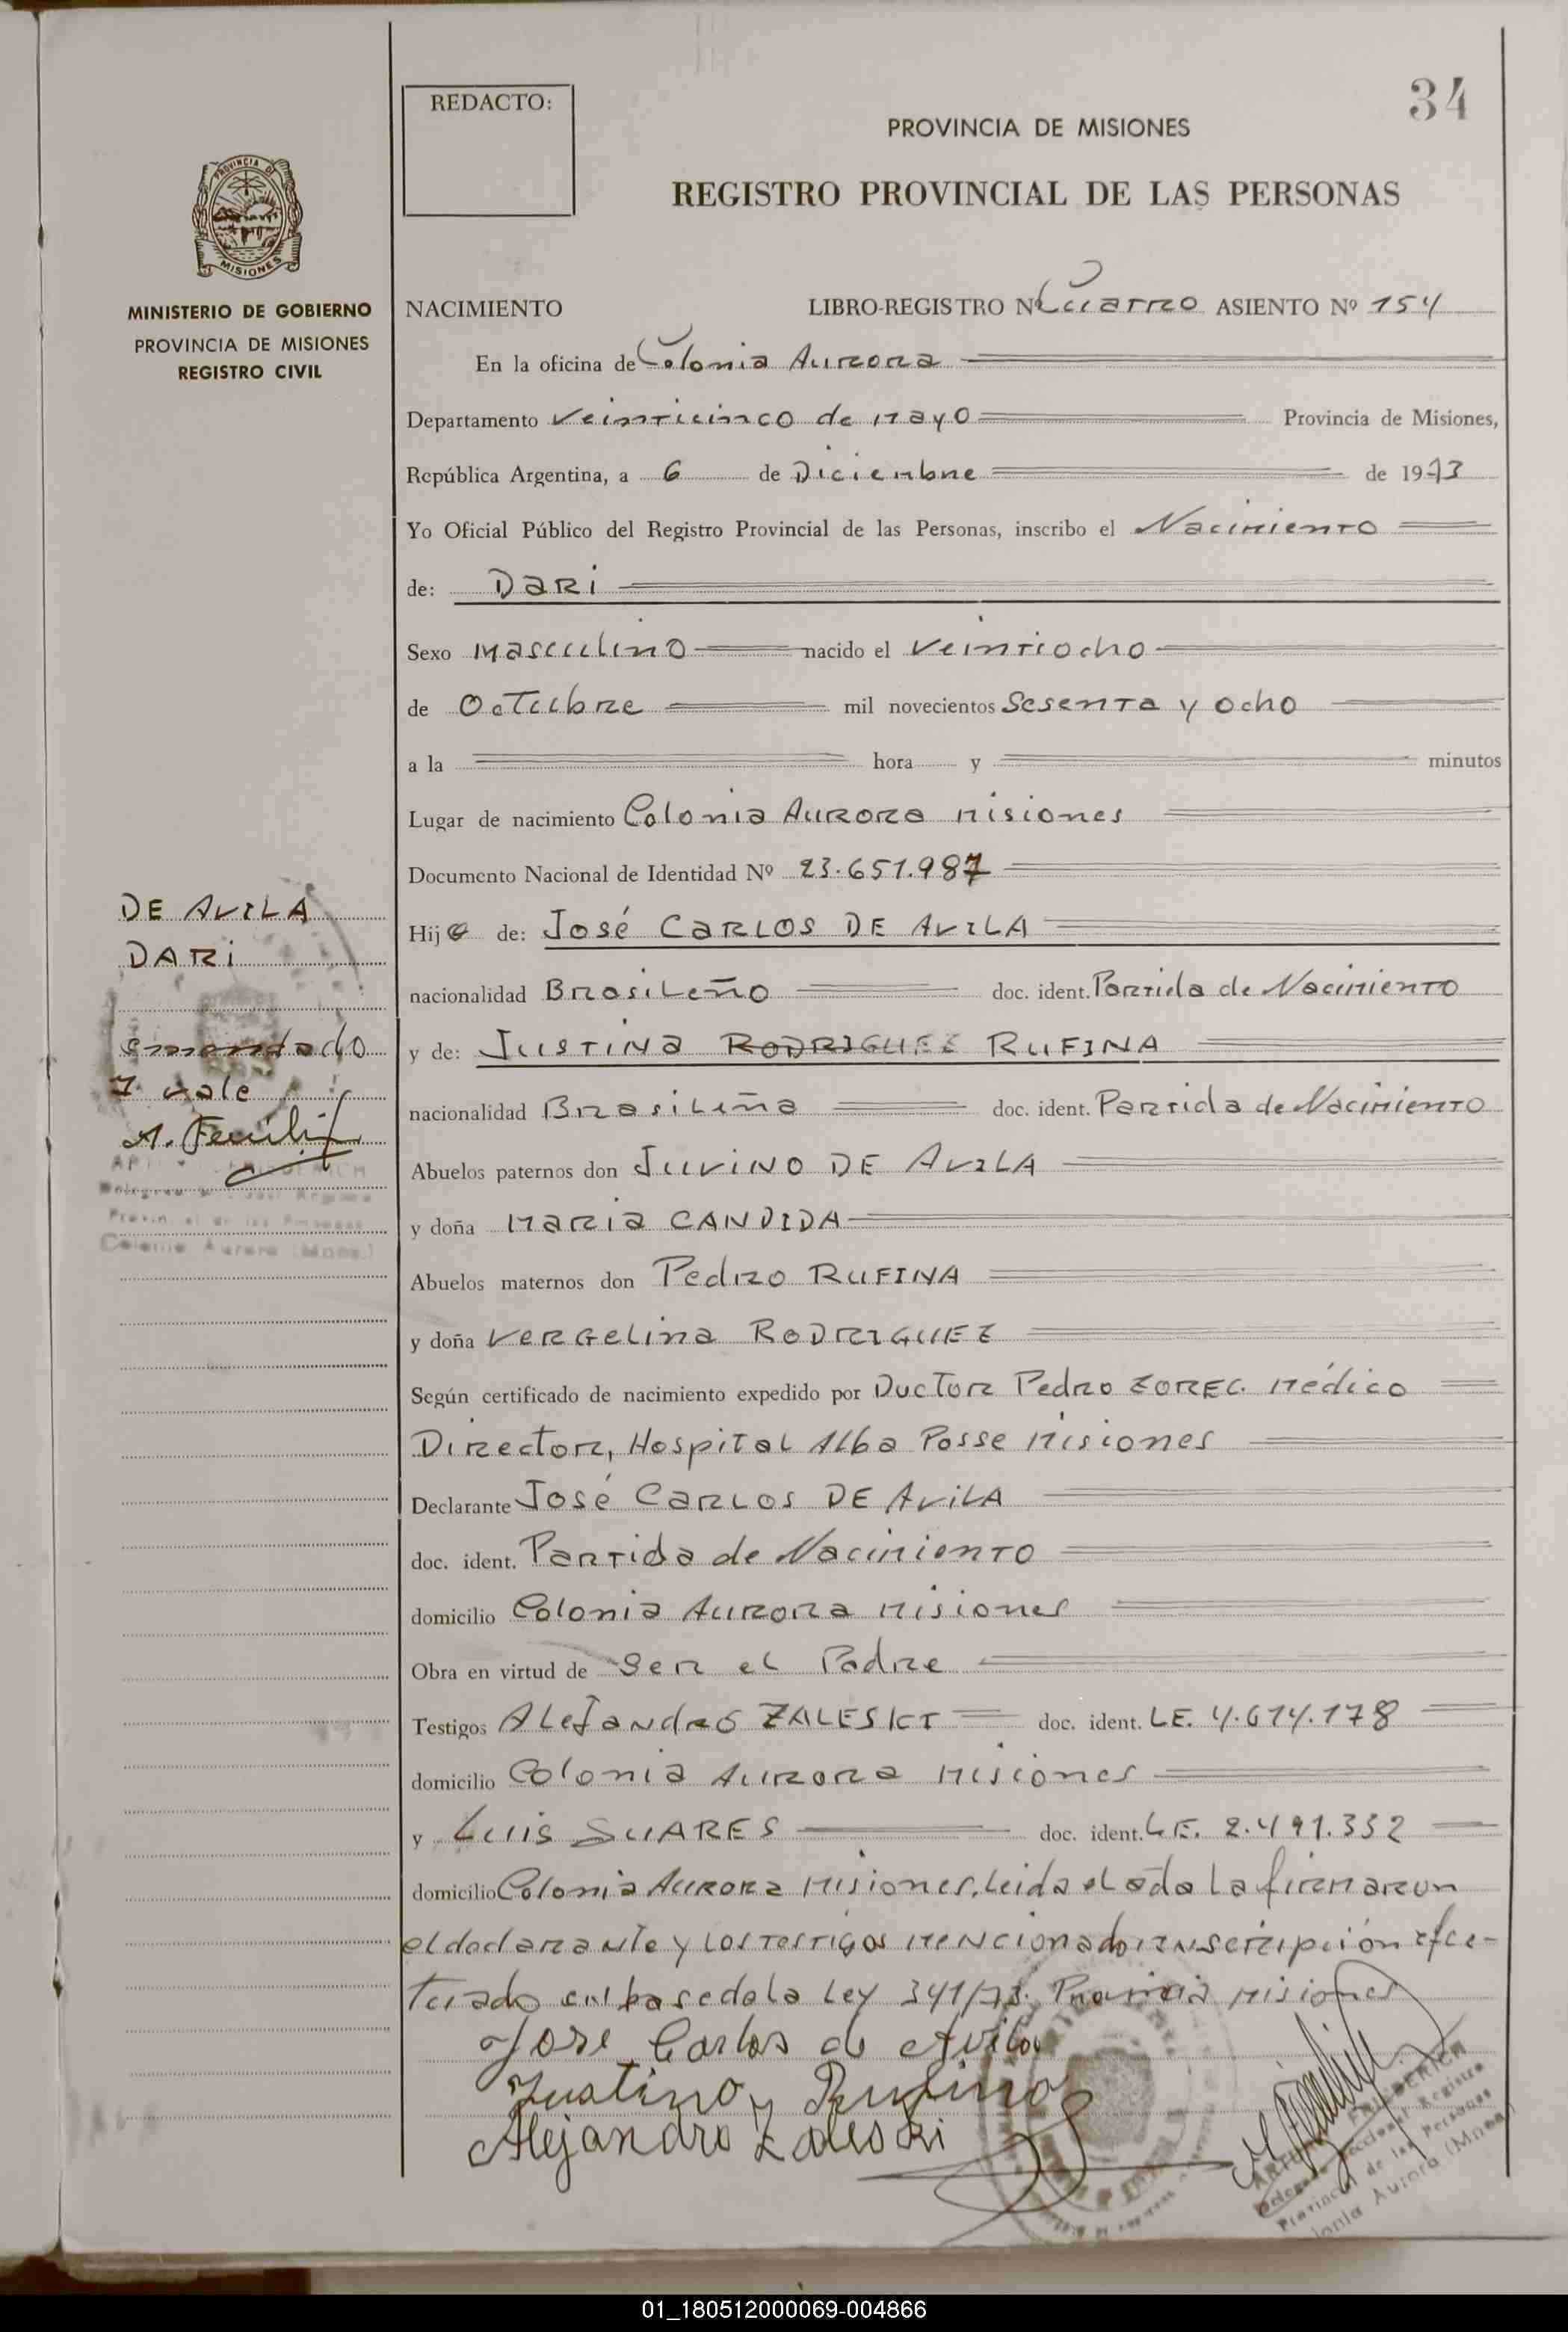 34
REDACTO:
PROVINCIA DE MISIONES
REGISTRO PROVINCIAL DE LAS PERSONAS
PROVINCIA DE
MISIONES
MINISTERIO DE GOBIERNO
PROVINCIA DE MISIONES
REGISTRO CIVIL
NACIMIENTO LIBRO-REGISTRO Nº Cuatro ASIENTO Nº 154
En la oficina de Colonia Aurora
Departamento Veinticinco de Mayo Provincia de Misiones,
República Argentina, a 6 de Diciembre de 1973
Yo Oficial Público del Registro Provincial de las Personas, inscribo el Nacimiento
de: DARI
Sexo Masculino nacido el Veintiocho
de Octubre mil novecientos Sesenta y ocho
a la hora y minutos
Lugar de nacimiento Colonia Aurora Misiones
Documento Nacional de Identidad Nº 23.651.987
DE AVILA
DARI
emendado
7 vale
Hijo de: José CARLOS DE AVILA
nacionalidad Brasileño doc. ident. Partida de Nacimiento
y de: JUSTINA RODRIGUEZ RUFINA
nacionalidad Brasileña doc. ident. Partida de Nacimiento
Abuelos paternos don JUVINO DE AVILA
y doña MARIA CANDIDA
Colonia Aurora (Mnes.)
Abuelos maternos don Pedro RUFINA
y doña VERGELINA RODRIGUEZ
Según certificado de nacimiento expedido por Ductor Pedro ZOREC. Médico
Director, Hospital Alba Posse Misiones
Declarante José CARLOS DE AVILA
doc. ident. Partida de Nacimiento
domicilio Colonia Aurora Misiones
Obra en virtud de Ser el Padre
Testigos Alejandro ZALESKI doc. ident. LE. 4.614.178
domicilio Colonia Aurora Misiones
y Luis SUARES doc. ident. L.E. 2.491.332
domicilio Colonia Aurora Misiones. Leida el ada la firmaron
el declarante y los testigos mencionado inscripción efec-
tuado en base de la Ley 341/73. Provincia Misiones
Jose Carlos de Avila
Justina Rufina
Alejandro Zaleski
Colonia Aurora (Mnes)
01_180512000069-004866